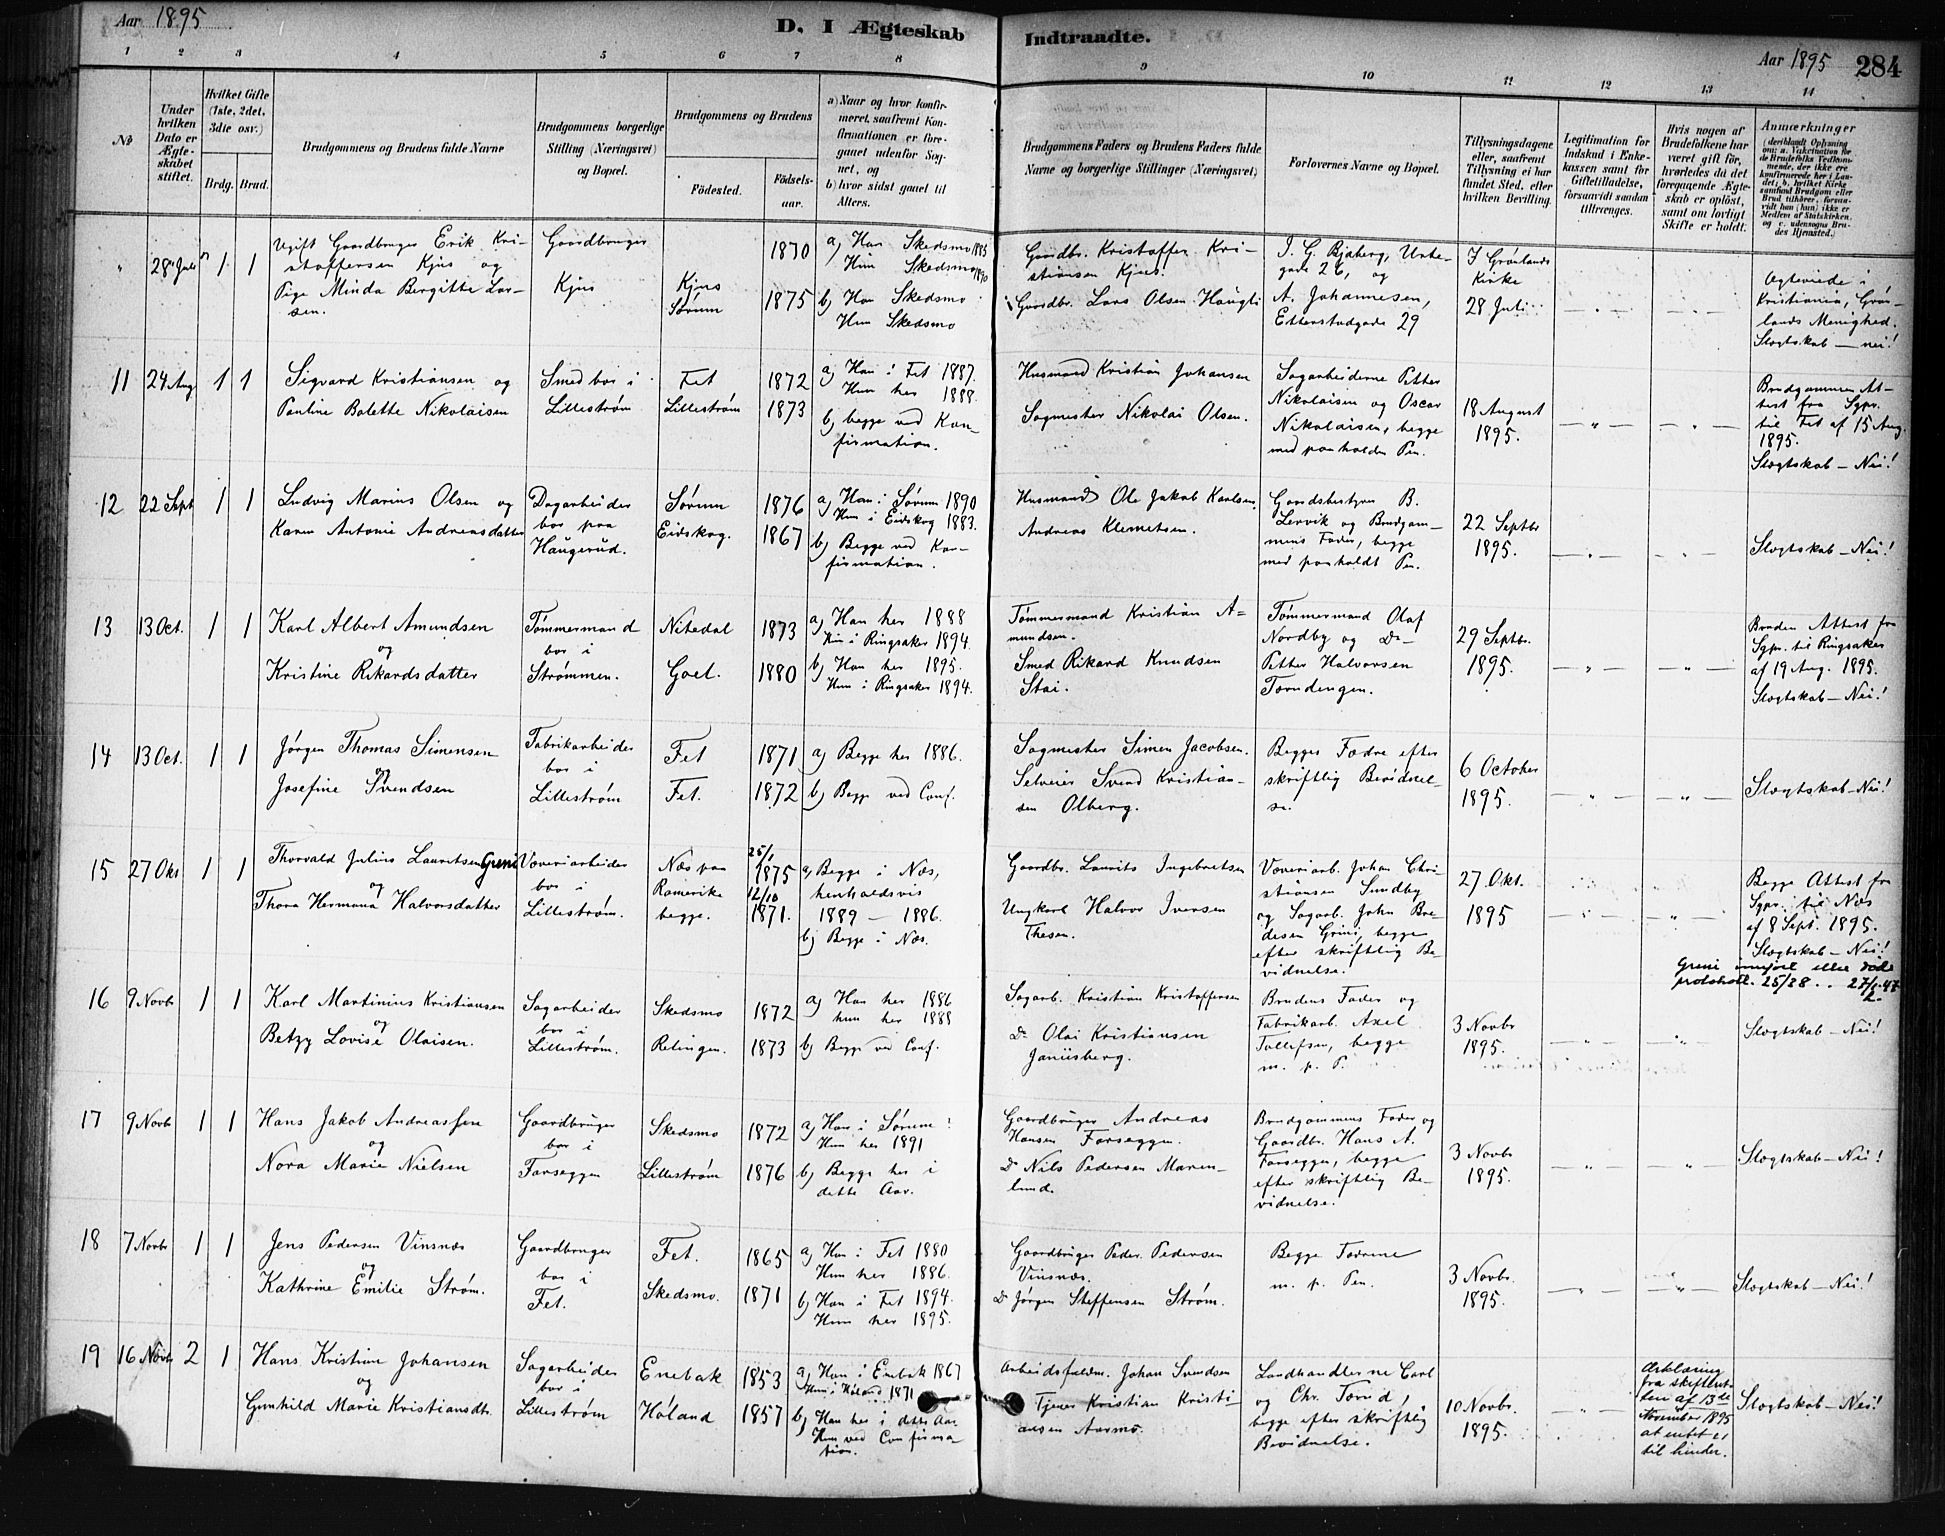 Aar 1895
D. I Ægteskab Indtraadte.
Aar 1895 284
1 2 3 4 5 6 7 8 9 10 11 12 13 14
No
Under hvilken Dato er Ægteskabet stiftet.
Hvilket Gifte (1ste, 2det, 3die osv.)
Brdg. Brud.
Brudgommens og Brudens fulde Navne
Brudgommens borgerlige Stilling (Næringsvei) og Bopæl.
Brudgommens og Brudens
Födested.
Födsels-aar.
a) Naar og hvor konfirmeret, saafremt Konfirmationen er foregaaet udenfor Sognet, og
b) hvor sidst gaaet til Alters.
Brudgommens Faders og Brudens Faders fulde Navne og borgerlige Stillinger (Næringsvei)
Forlovernes Navne og Bopæl.
Tillysningsdagene eller, saafremt Tillysning ei har fundet Sted, efter hvilken Bevilling.
Legitimation for Indskud i Enkekassen samt for Giftetilladelse, forsaavidt saadan tiltrænges.
Hvis nogen af Brudefolkene har været gift før, hvorledes da det foregaaende Ægteskab er oplöst, samt om lovligt Skifte er holdt.
Anmærkninger
" 28 Juli 1 1
Ugift Gaardbruger Erik Kri-
stoffersen Kjus og
Pige Minda Bergitte Lar-
sen.
Gaardbruger
Kjus
Kjus
Sørum
1870
1875
a) Han Skedsmo 1885
Hun Skedsmo 1890
b) Han Skedsmo
Hun Skedsmo
Gaardbr. Kristoffer Kri-
stiansen Kjus.
Gaardbr. Lars Olsen Haugli
gade 26, og
A. Johannesen,
Etterstadgade 29
I Grønlands
Kirke
28 Juli
Kristiania, Grøn-
lands Menighed.
Slægtskab – nei!
11 24 Aug 1 1
Sigvard Kristiansen og
Pauline Bolette Nikolaisen
Smed bor i
Lillestrøm
Fet
Lillestrøm
1872
1873
a) Han i Fet 1887.
Hun her 1888.
b) begge ved Kon-
firmation.
Husmand Kristian Johansen
Sagmester Nikolai Olsen.
Sagarbeiderne Petter
Nikolaisen og Oscar
Nikolaisen, begge
med paaholden Pen.
18 August
1895.
Brudgommen At-
test fra Sgpr.
til Fet af 15 Aug.
1895.
Slægtskab – Nei!
12 22 Sept 1 1
Ludvig Marius Olsen og
Karen Antonie Andreasdatter
Dagarbeider
bor paa
Haugerud.
Sørum
Eidskog.
1876
1867
a) Han i Sørum 1890
Hun i Eidskog 1883.
b) Begge ved Kon-
firmation.
Husmand Ole Jakob Karlsen
Andreas Klemetsen.
Gaardsbestyrer B.
Lervik og Brudgom-
mens Fader, begge
med paaholdt Pen.
22 Septbr
1895.
Slægtskab – Nei!
13 13 Oct. 1 1
Karl Albert Amundsen
og
Kristine Rikardsdatter
Tømmermand
bor i
Strømmen.
Nitedal
1873
1880
a) Han her 1888
Hun i Ringsaker 1894.
b) Han her 1895.
Hun i Ringsaker 1894.
Tømmermand Kristian A-
mundsen.
Smed Rikard Knudsen
Stai.
Tømmermand Olaf
Nordby og Do
Petter Halvorsen
29 Septbr.
1895.
Bruden Attest fra
Sgpr. til Ringsaker
af 19 Aug. 1895.
Slægtskab – Nei!
14 13 Oct. 1 1
Jørgen Thomas Simensen
og
Josefine Svendsen
Fabrikarbeider
bor i
Lillestrøm
Fet
Fet.
1871
1872
a) Begge her 1886.
b) Begge ved Conf.
Sagmester Simen Jacobsen.
Selveier Svend Kristian-
sen Olberg.
Begges Fædre efter
skriftlig Bevidnel-
se.
6 October
1895.
Slægtskab – Nei!
15 27 Okt 1 1
Thorvald Julius Lauritsen Greni
og
Thora Hermana Halvorsdatter
Væveriarbeider
bor i
Lillestrøm.
Næs paa
Romerike
begge.
25/1
1875
12/10
1871.
a) Begge i Næs,
henholdsvis
1889 – 1886.
b) Begge i Næs.
Gaardbr. Laurits Ingebretsen
Ungkarl Halvor Iversen
Thesen.
Væveriarb. Johan Chri-
stiansen Sundby
og Sagarb. John Bre-
desen Grini, begge
efter skriftlig Be-
vidnelse.
27. Okt.
1895
Begge Attest fra
Sgpr. til Næs
af 8 Sept. 1895.
Slægtskab – Nei!
16 9 Novbr 1 1
Karl Martinius Kristiansen
og
Betzy Lovise Olaisen.
Sagarbeider
bor i
Lillestrøm.
Skedsmo
Relingen.
1872
1873
a) Han her 1886
hun her 1888
b) Begge ved Conf.
Sagarb. Kristian Kristoffersen
Do Olai Kristiansen
Brudens Fader og
Fabrikarb. Axel
Tollefsen, begge
m. p. P.
3 Novbr
1895.
Slægtskab – Nei!
17 9 Novbr 1 1
Hans Jakob Andreassen
og
Nora Marie Nielsen
Gaardbruger
bor i
Farseggen
Skedsmo
Lillestrøm
1872
1876
a) Han i Sørum!
Hun her 1891
b) Begge her i
dette Aar.
Gaardbruger Andreas
Hansen Farseggen.
Do Nils Pedersen Maren-
lund.
Brudgommens Fader og
Gaardbr. Hans A.
Farseggen, begge
efter skriftlig Be-
vidnelse.
3 Novbr
1895.
Slægtskab – Nei!
18 7 Novbr 1 1
Jens Pedersen Vinsnæs
og
Kathrine Emilie Strøm.
Gaardbruger
bor i
Fet.
Fet.
Skedsmo.
1865
1871
a) Han i Fet 1880
Hun her 1886.
b) Han i Fet 1894.
Hun her 1895.
Gaardbruger Peder Pedersen
Vinsnæs.
Do Jørgen Steffensen Strøm.
Begge Fædrene
m. p. Pen.
3 Novbr.
1895.
Slægtskab – Nei!
19 16 Novbr 2 1
Hans Kristian Johansen
og
Gunhild Marie Kristiansdtr.
Sagarbeider
bor i
Lillestrøm
Enebak
Høland
1853
1857
a) Han i Enebak 1867
Hun i Høland 1871
b) Han her i dette Aar
Hun ved Confirma-
tion.
Arbeidsformd. Johan Svendsen
Tjener Kristian Kristi-
ansen Aarmo.
Landhandlerne Carl
og Chr. Torud,
begge efter skriftlig
Bevidnelse.
10 Novbr.
1895.
Erklæring
fra skifteret-
ten af 13de
November 1895
at intet er
til hinder.
Slægtskab – Nei!